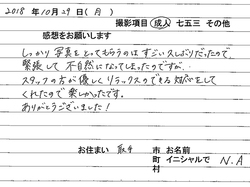 2018年10月29日(月)
撮影項目 成人 七五三 その他
感想をお願いします
しっかり写真をとってもらうのはすごい久しぶりだったので、
緊張して不自然になってしまったのですが、
スタッフの方が優しくリラックスのできる対応をして
くれたので楽しかったです。
ありがとうございました!
お住まい 取手 市 お名前
町 イニシャルで N.A
村